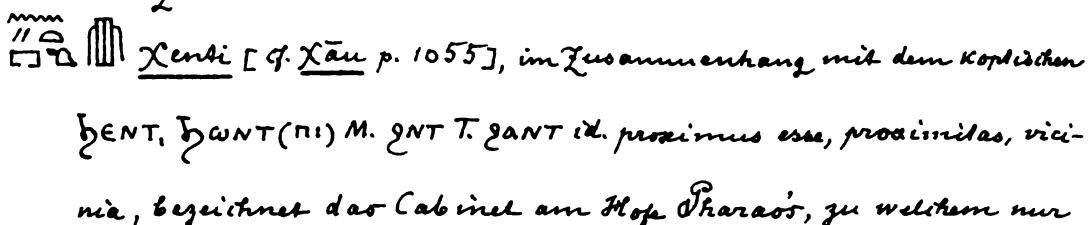 χenti [cf. χāu p. 1055], im Zusammenhang mit dem koptischen
ϧⲉⲛⲧ, ϧⲱⲛⲧ(ⲡⲓ) M. ϩⲛⲧ T. ϩⲁⲛⲧ id. proximus esse, proximitas, vici-
nia, bezeichnet das Cabinet am Hofe Pharao's, zu welchem nur